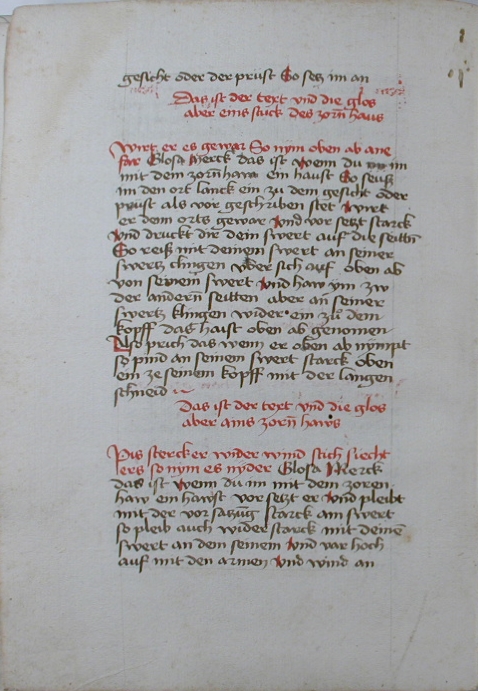 gesicht oder der prust So secz im an
Das ist der text vnd die glos
aber eins stuck des zorñ haus
Wirt er es gewar So nym oben ab ane
far Glosa Merck das ist wenn du im
mit dem zorñ haw ein haust So seuß
im den ort lanck ein zu dem gesicht oder
prust als vor geschriben stet Wirt
er dem orts gewar vnd vor seczt starck
vnd druckt dir dein swert auf die seittñ
So reiß mit deinem swert an seiner
swertz clingen vber sich auf oben ab
von seinem swert vnd haw ym zw
der andern seitten aber an seiner
swertz klingen wider ein zu dem
kopff das haist oben ab genomen
Also prich das wenn er oben ab nympt
so pind an seinem swert starck oben
ein ze seinem kopff mit der langen
schneid
Das ist der text vnd die glos
aber ains zorñ haws
Pis stercker wider wind stich siecht
ers so nym es nyder Glosa Merck
das ist wenn du im mit dem zoren
haw ein hawst vor seczt er vnd pleibt
mit der vor saczũg starck am swert
so pleib auch wider starck mit deinẽ
swert an dem seinem vnd var hoch
auf mit den armen vnd wind an